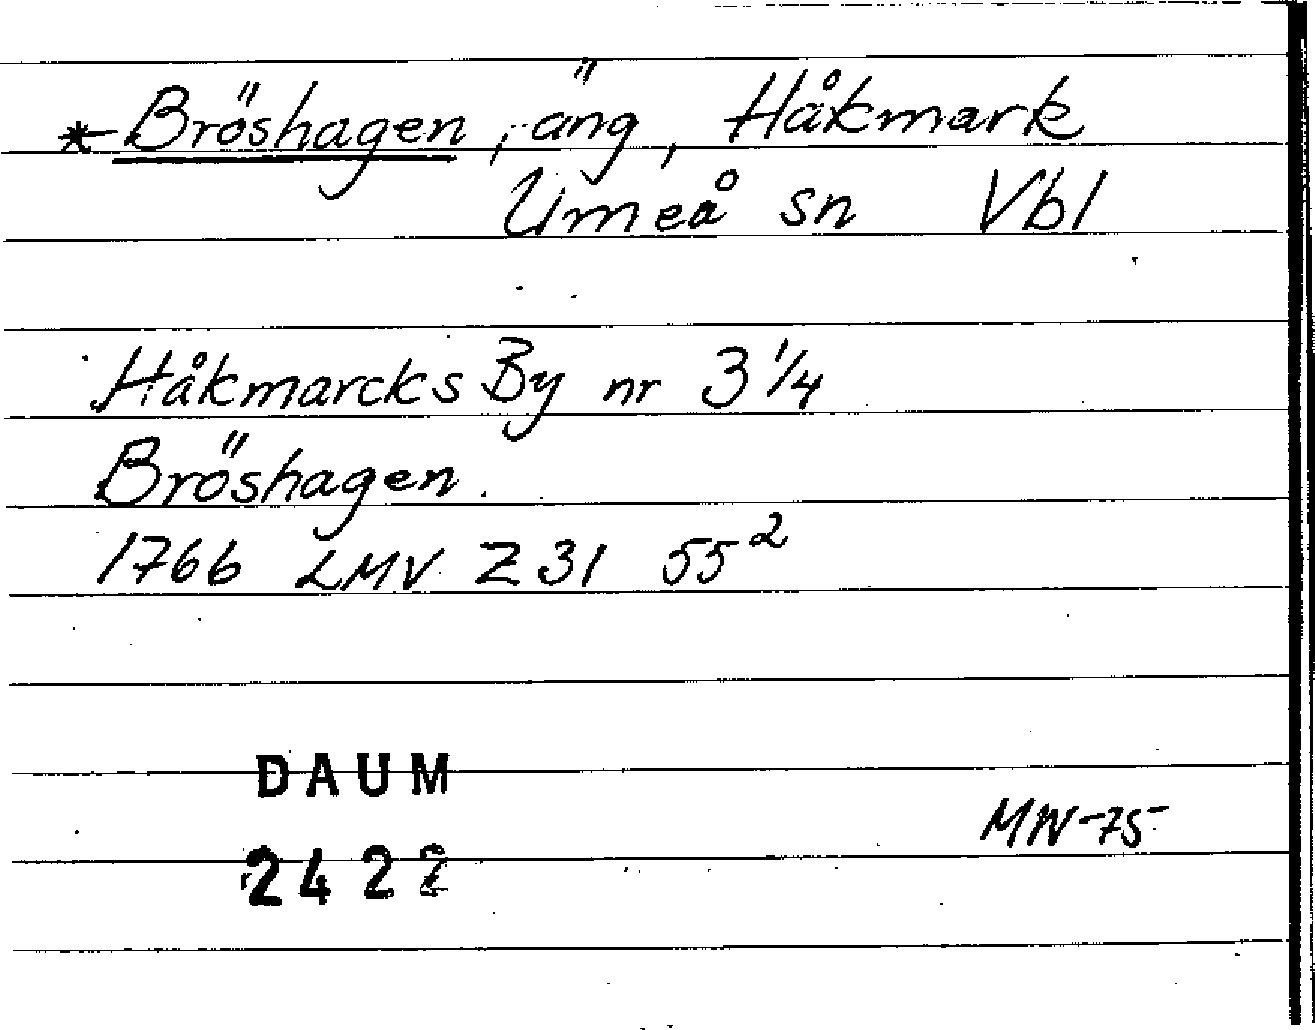 *Bröshagen, äng, Håkmark
Umeå sn Vbl
Håkmarcks By nr 3 1/4
Bröshagen.
1766 LMV Z 31 55²
DAUM
MW-75
2422